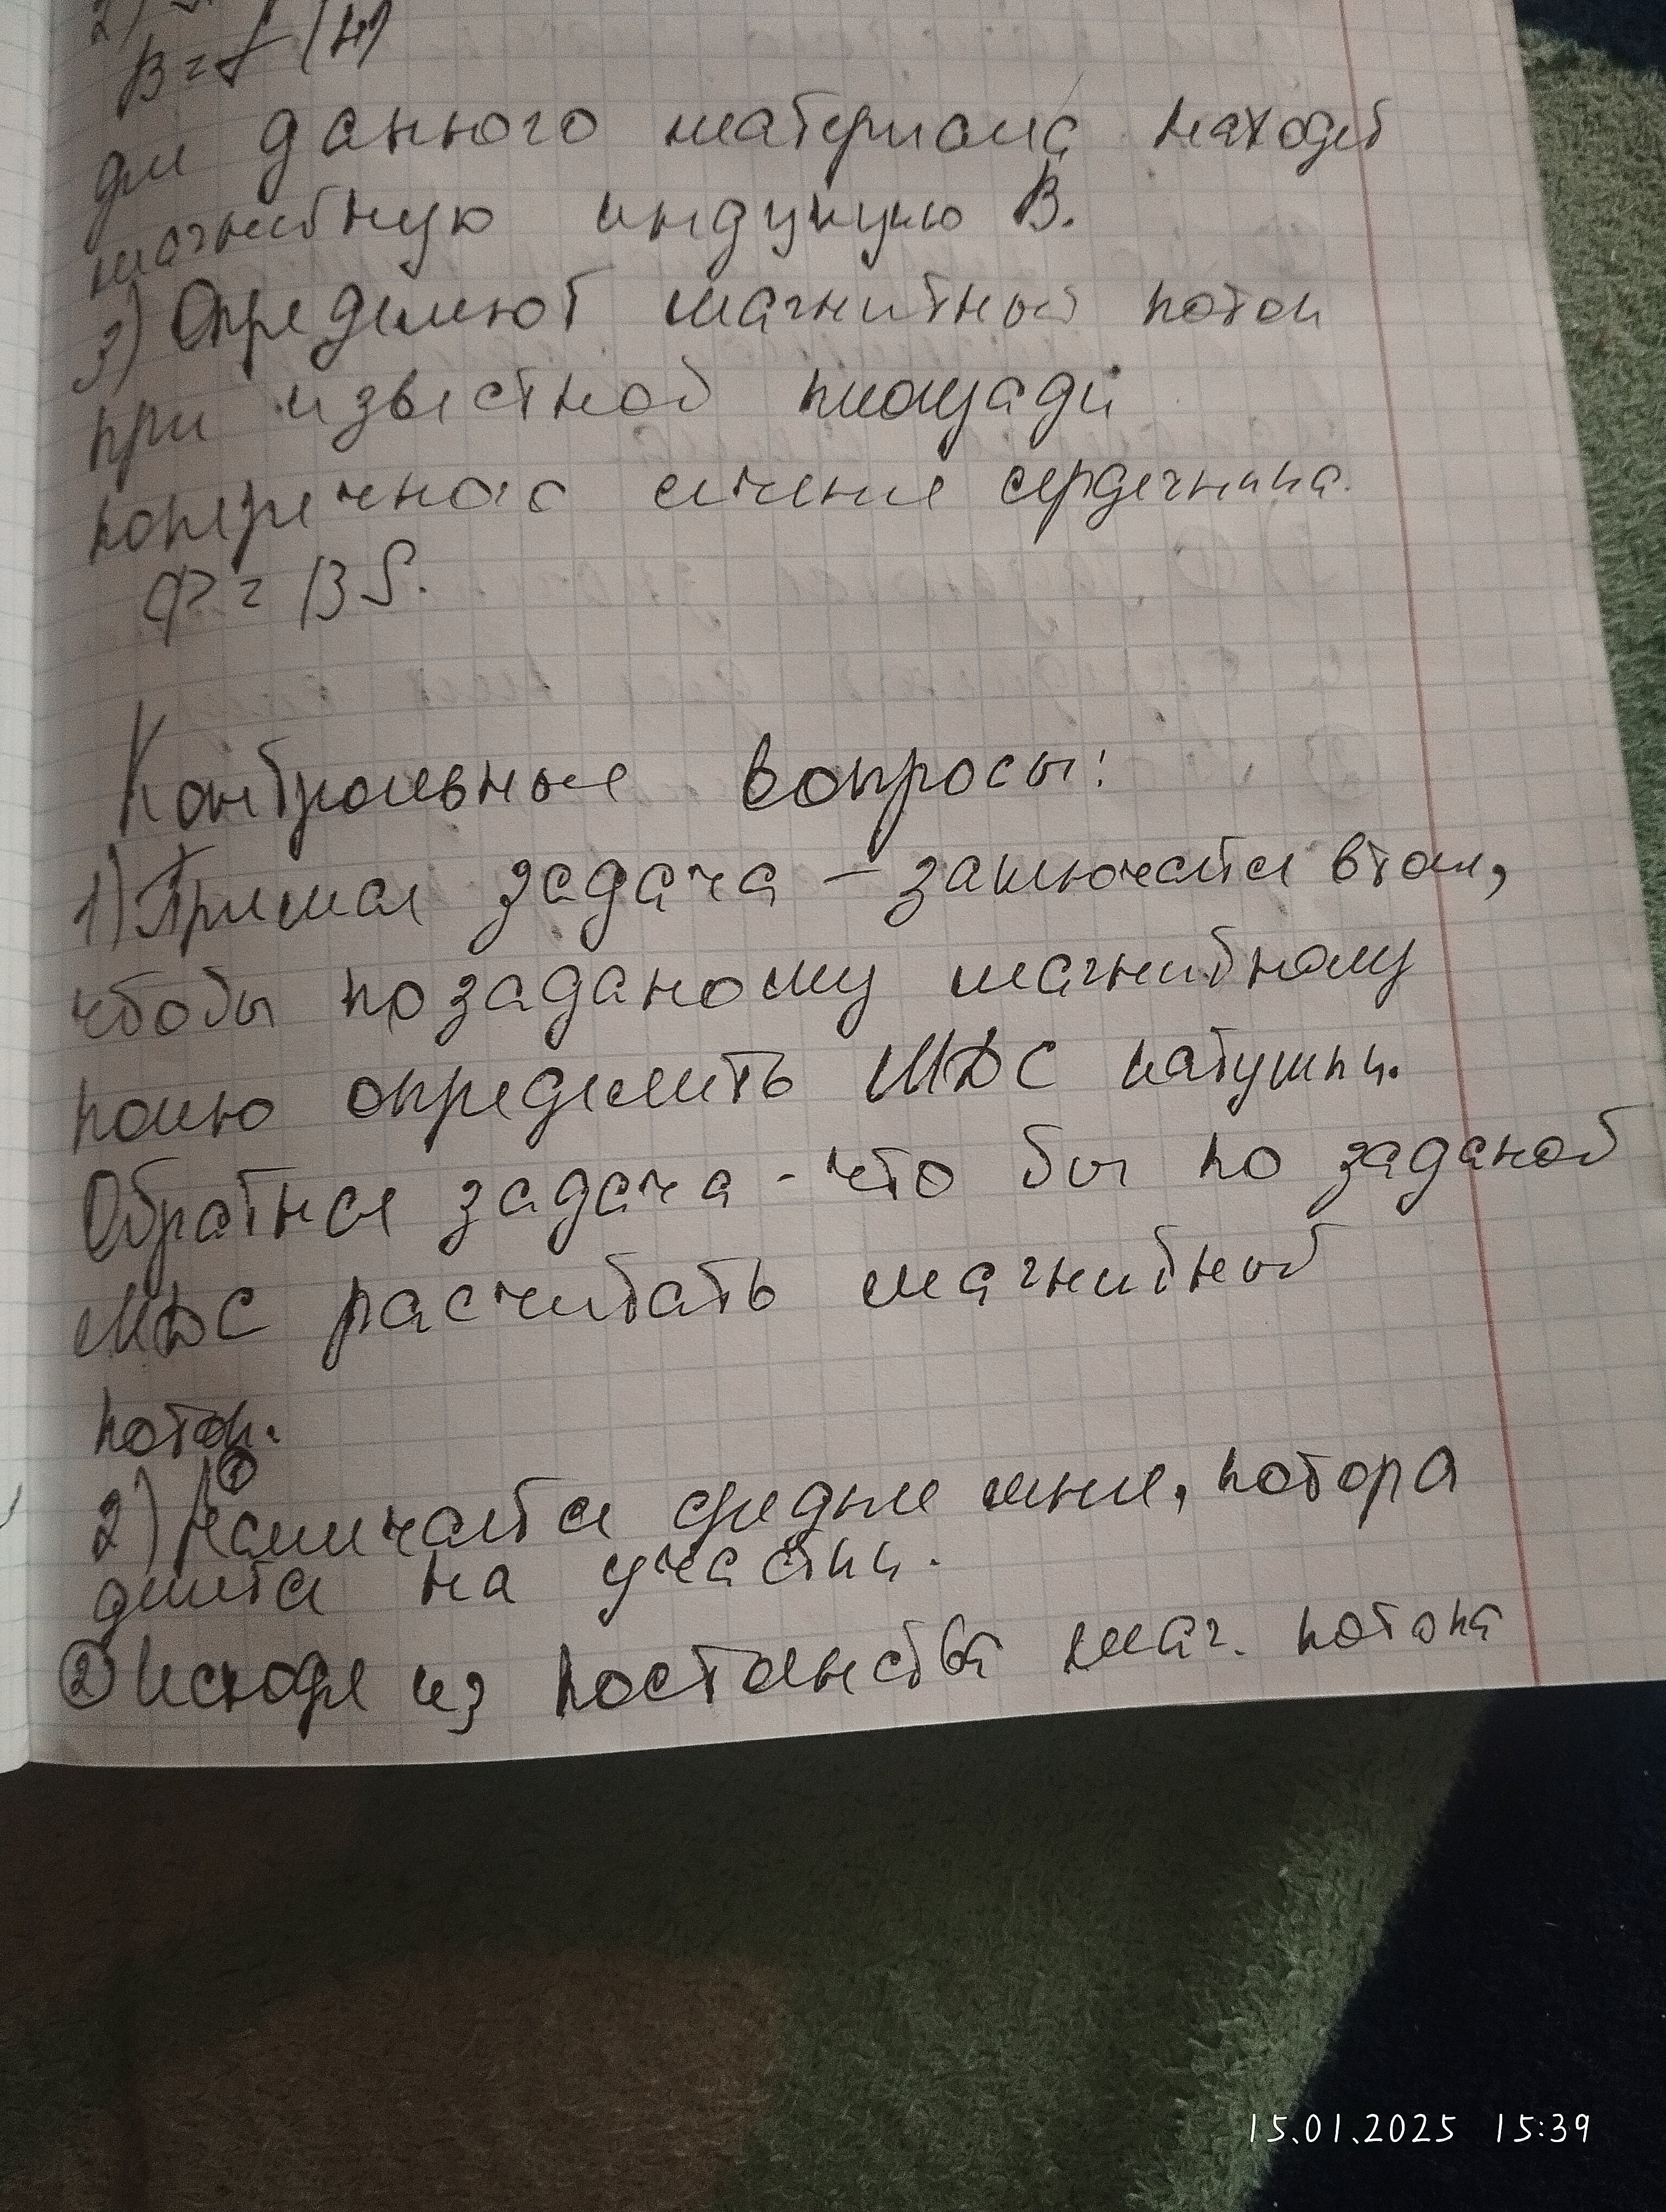 2)
B = f (H)
для даного материала находят
магнитную индукцию B.
3) Определяют магнитный поток
при известной площади
поперечного сечение сердечника.
Ф = BS.
Контрольные вопросы:
1) Прямая задача – заключается в том,
чтобы по заданому магнитному
полю определить МДС катушки.
Обратная задача - что бы по заданой
МДС расчитать магнитный
поток.
①
2) Намичается средняя линия, котора
дилтся на участки.
② Исходя из постоянства маг. потока
15.01.2025 15:39